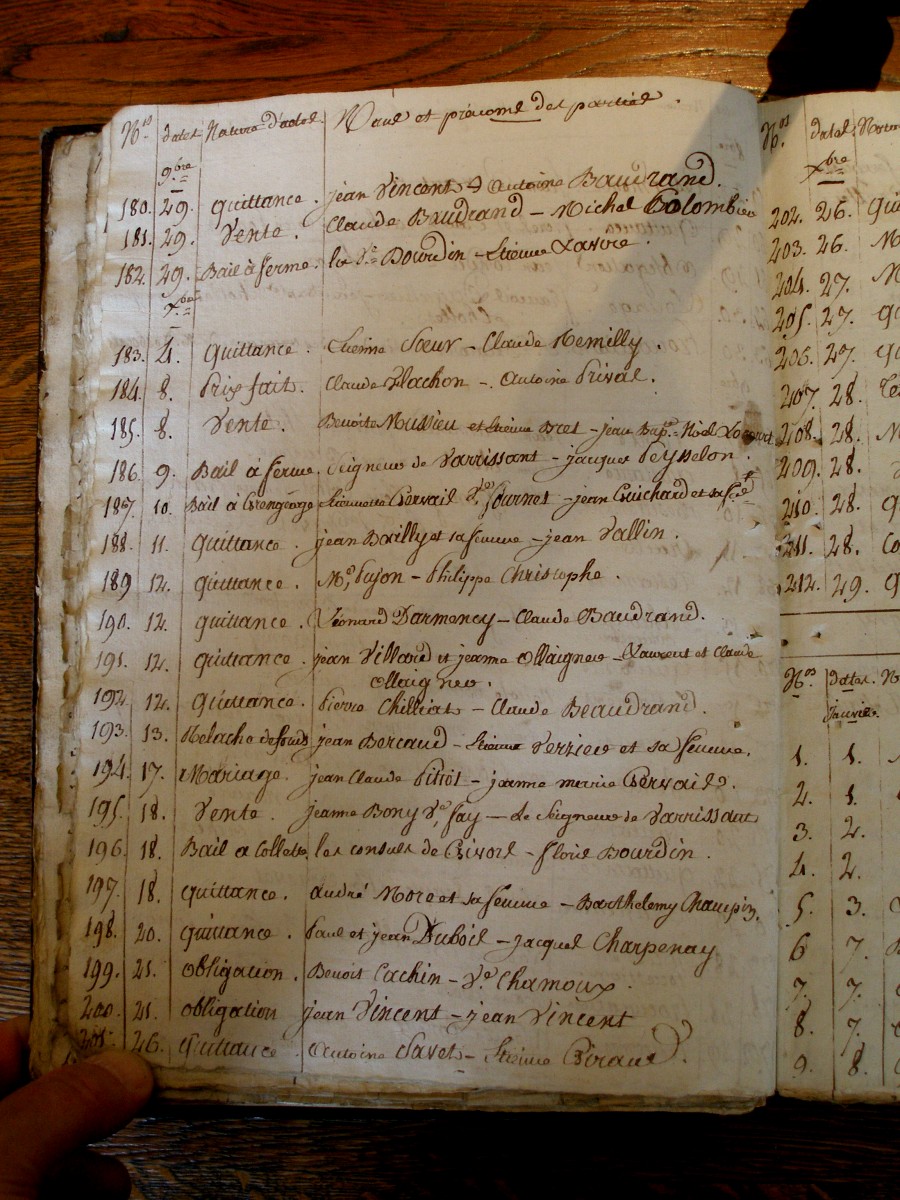 Nos dates Nature d'actes Noms et prénoms des parties.
9bre
180. 29. quittance. jean Vincent & Antoine Baudrand.
181. 29. Vente. Claude Baudrand - Michel Colombier
182. 29. Bail à ferme. la Ve Bourdin - Etienne Lavore.
Xbre
183. 4. quittance. Etienne Soeur - Claude Remilly.
184. 8. Prix fait. Claude Flachon - Antoine Prival.
185. 8. Vente. Benoite Mussieu et Etienne Bret - jean Bapte Noel
186 9. Bail à ferme. Seigneur de Varrissant - jacques Peysselon.
187 10. Bail à Grengeage Etiennette Gervail Ve fournet - jean Guichard et sa fe
188. 11. quittance. jean Bailly et sa femme - jean Vallin.
189 12. quittance. Me Pujon - Philippe Christophe.
190. 12. quittance. Léonard Darmency - Claude Baudrand.
191. 12. quittance. jean Villard et jeanne Ollaignier - Laurent et Claude
Ollaignier.
192. 12. quittance. Pierre Chilliat - Claude Beaudrand.
193. 13. Relache de fonds jean Bercaud - Etienne Verzieu et sa femme.
194. 17. Mariage. jean Claude Pitiot - jeanne marie Gervais.
195. 18. Vente. jeanne Bony Ve fay - Le Seigneur de Varrissant
196. 18. Bail a Collette. les consuls de Givors - floris Bourdin.
197. 18. quittance. andré More et sa femme - Barthelemy Champin.
198. 20. quittance. Paul et jean Dubois - Jacques Charpenay
199. 21. obligation. Benoit Cachin - Ve Chamoux.
200. 21. obligation jean Vincent - jean Vincent
201. 26. quittance. Antoine Savet - Etienne Giraud.
Nos dates
Xbre
202. 26.
203. 26.
204. 27.
205. 27.
206. 27.
207 28.
208. 28.
209. 28.
210. 28.
211. 28.
212. 29.
Nos dates.
Janvier.
1. 1.
2. 1.
3. 2.
4. 2.
5. 3.
6 7.
7. 7.
8. 7.
9. 8.